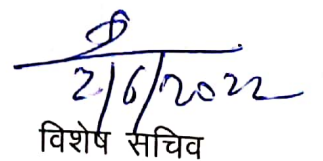 2/6/2022
विशेष सचिव